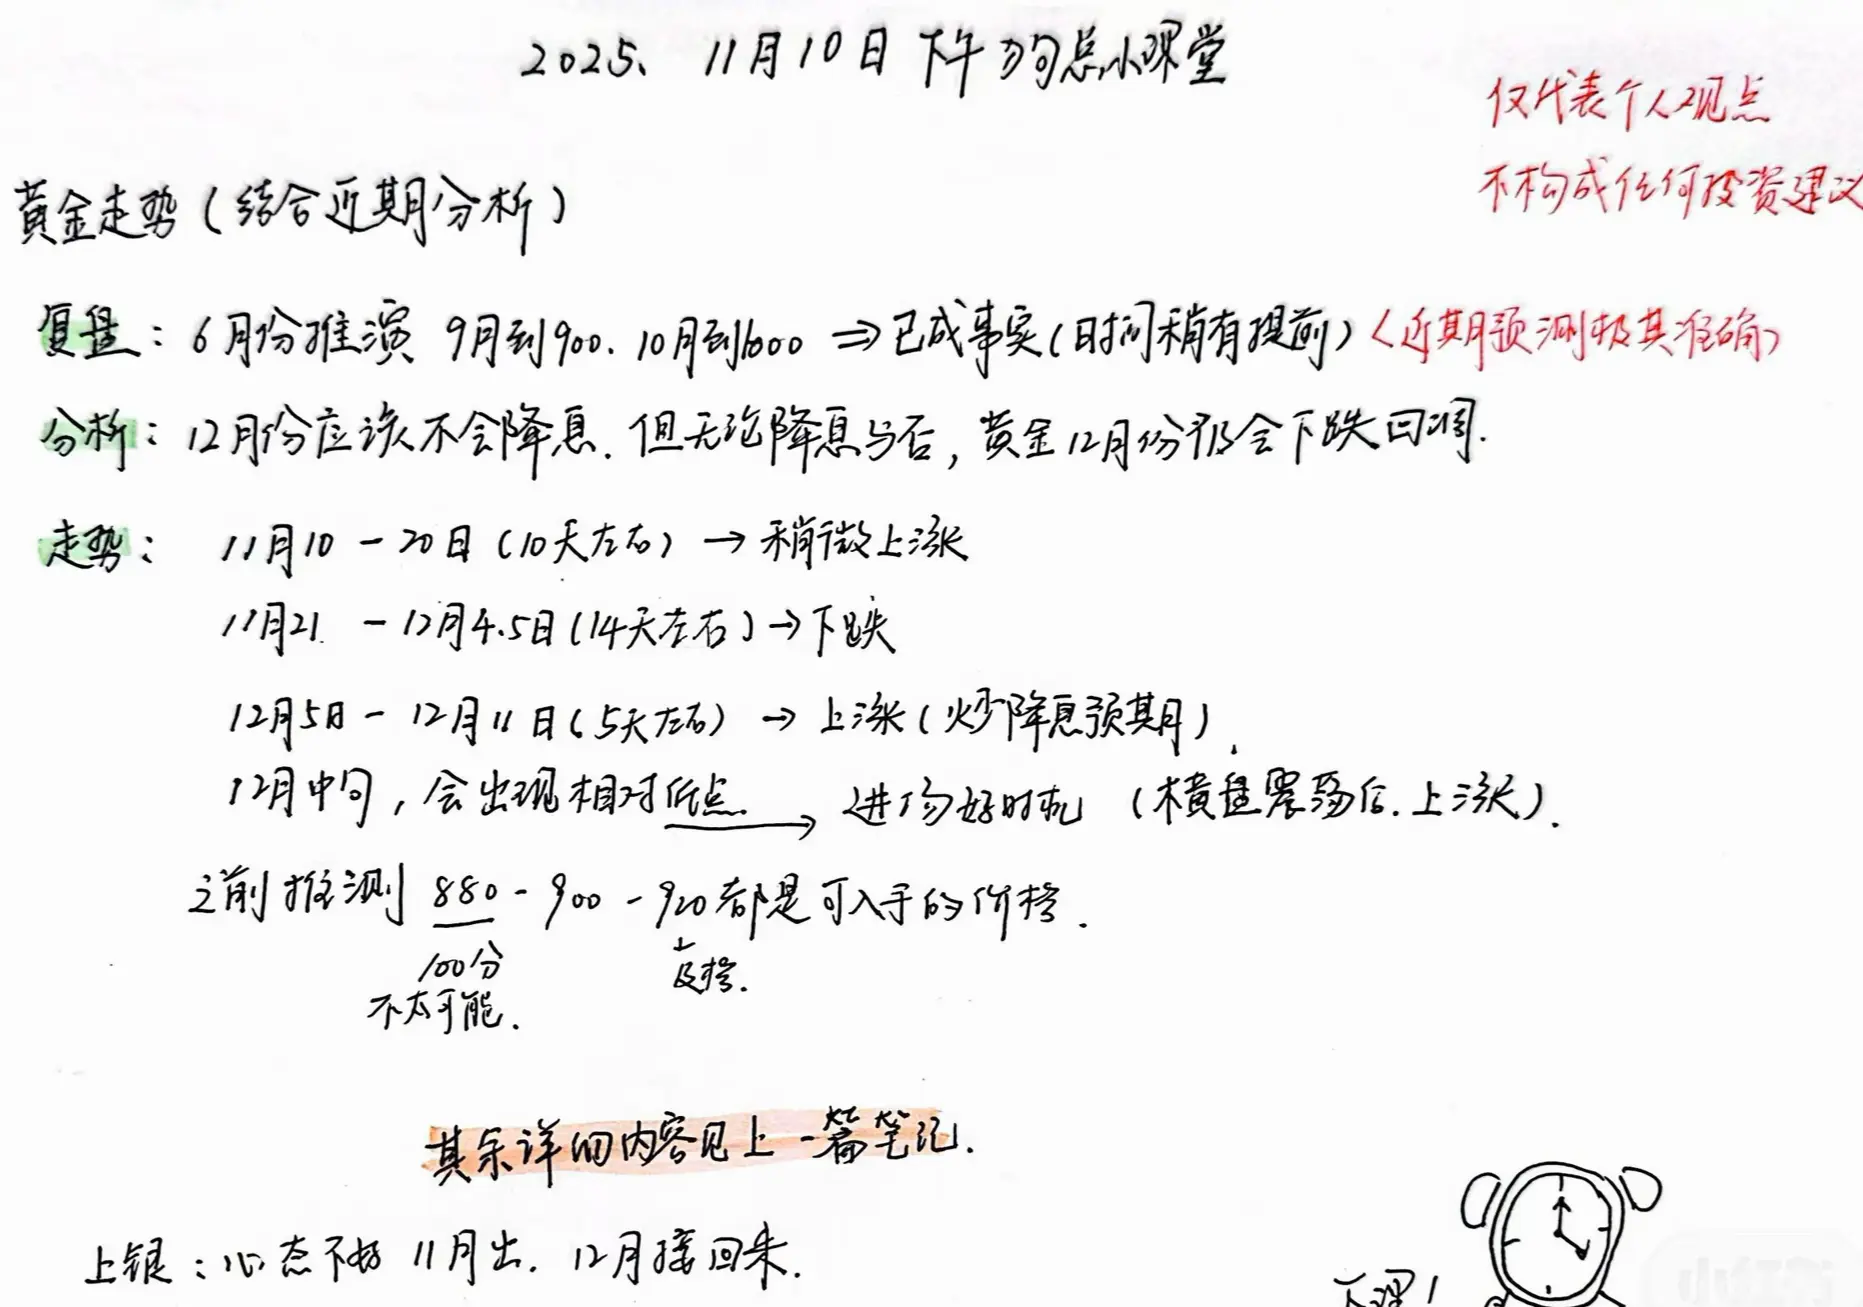 2025、11月10日下午狗总小课堂
仅代表个人观点
不构成任何投资建议
黄金走势（结合近期分析）
复盘：6月份推演 9月到900. 10月到1000 ⇒已成事实（时间稍有提前）〈近期预测极其准确〉
分析：12月份应该不会降息. 但无论降息与否，黄金12月份仍会下跌回调.
走势： 11月10-20日（10天左右）→ 稍微上涨
11月21 - 12月4.5日（14天左右）→下跌
12月5日 - 12月11日（5天左右）→ 上涨（炒降息预期）.
12月中旬，会出现相对低点 → 进场好时机 （横盘震荡后.上涨）.
之前推测 880 - 900 - 920都是可入手的价格.
100分 及格.
不太可能.
其余详细内容见上一篇笔记.
上银：心态不好 11月出. 12月接回来.
下课！
小红书